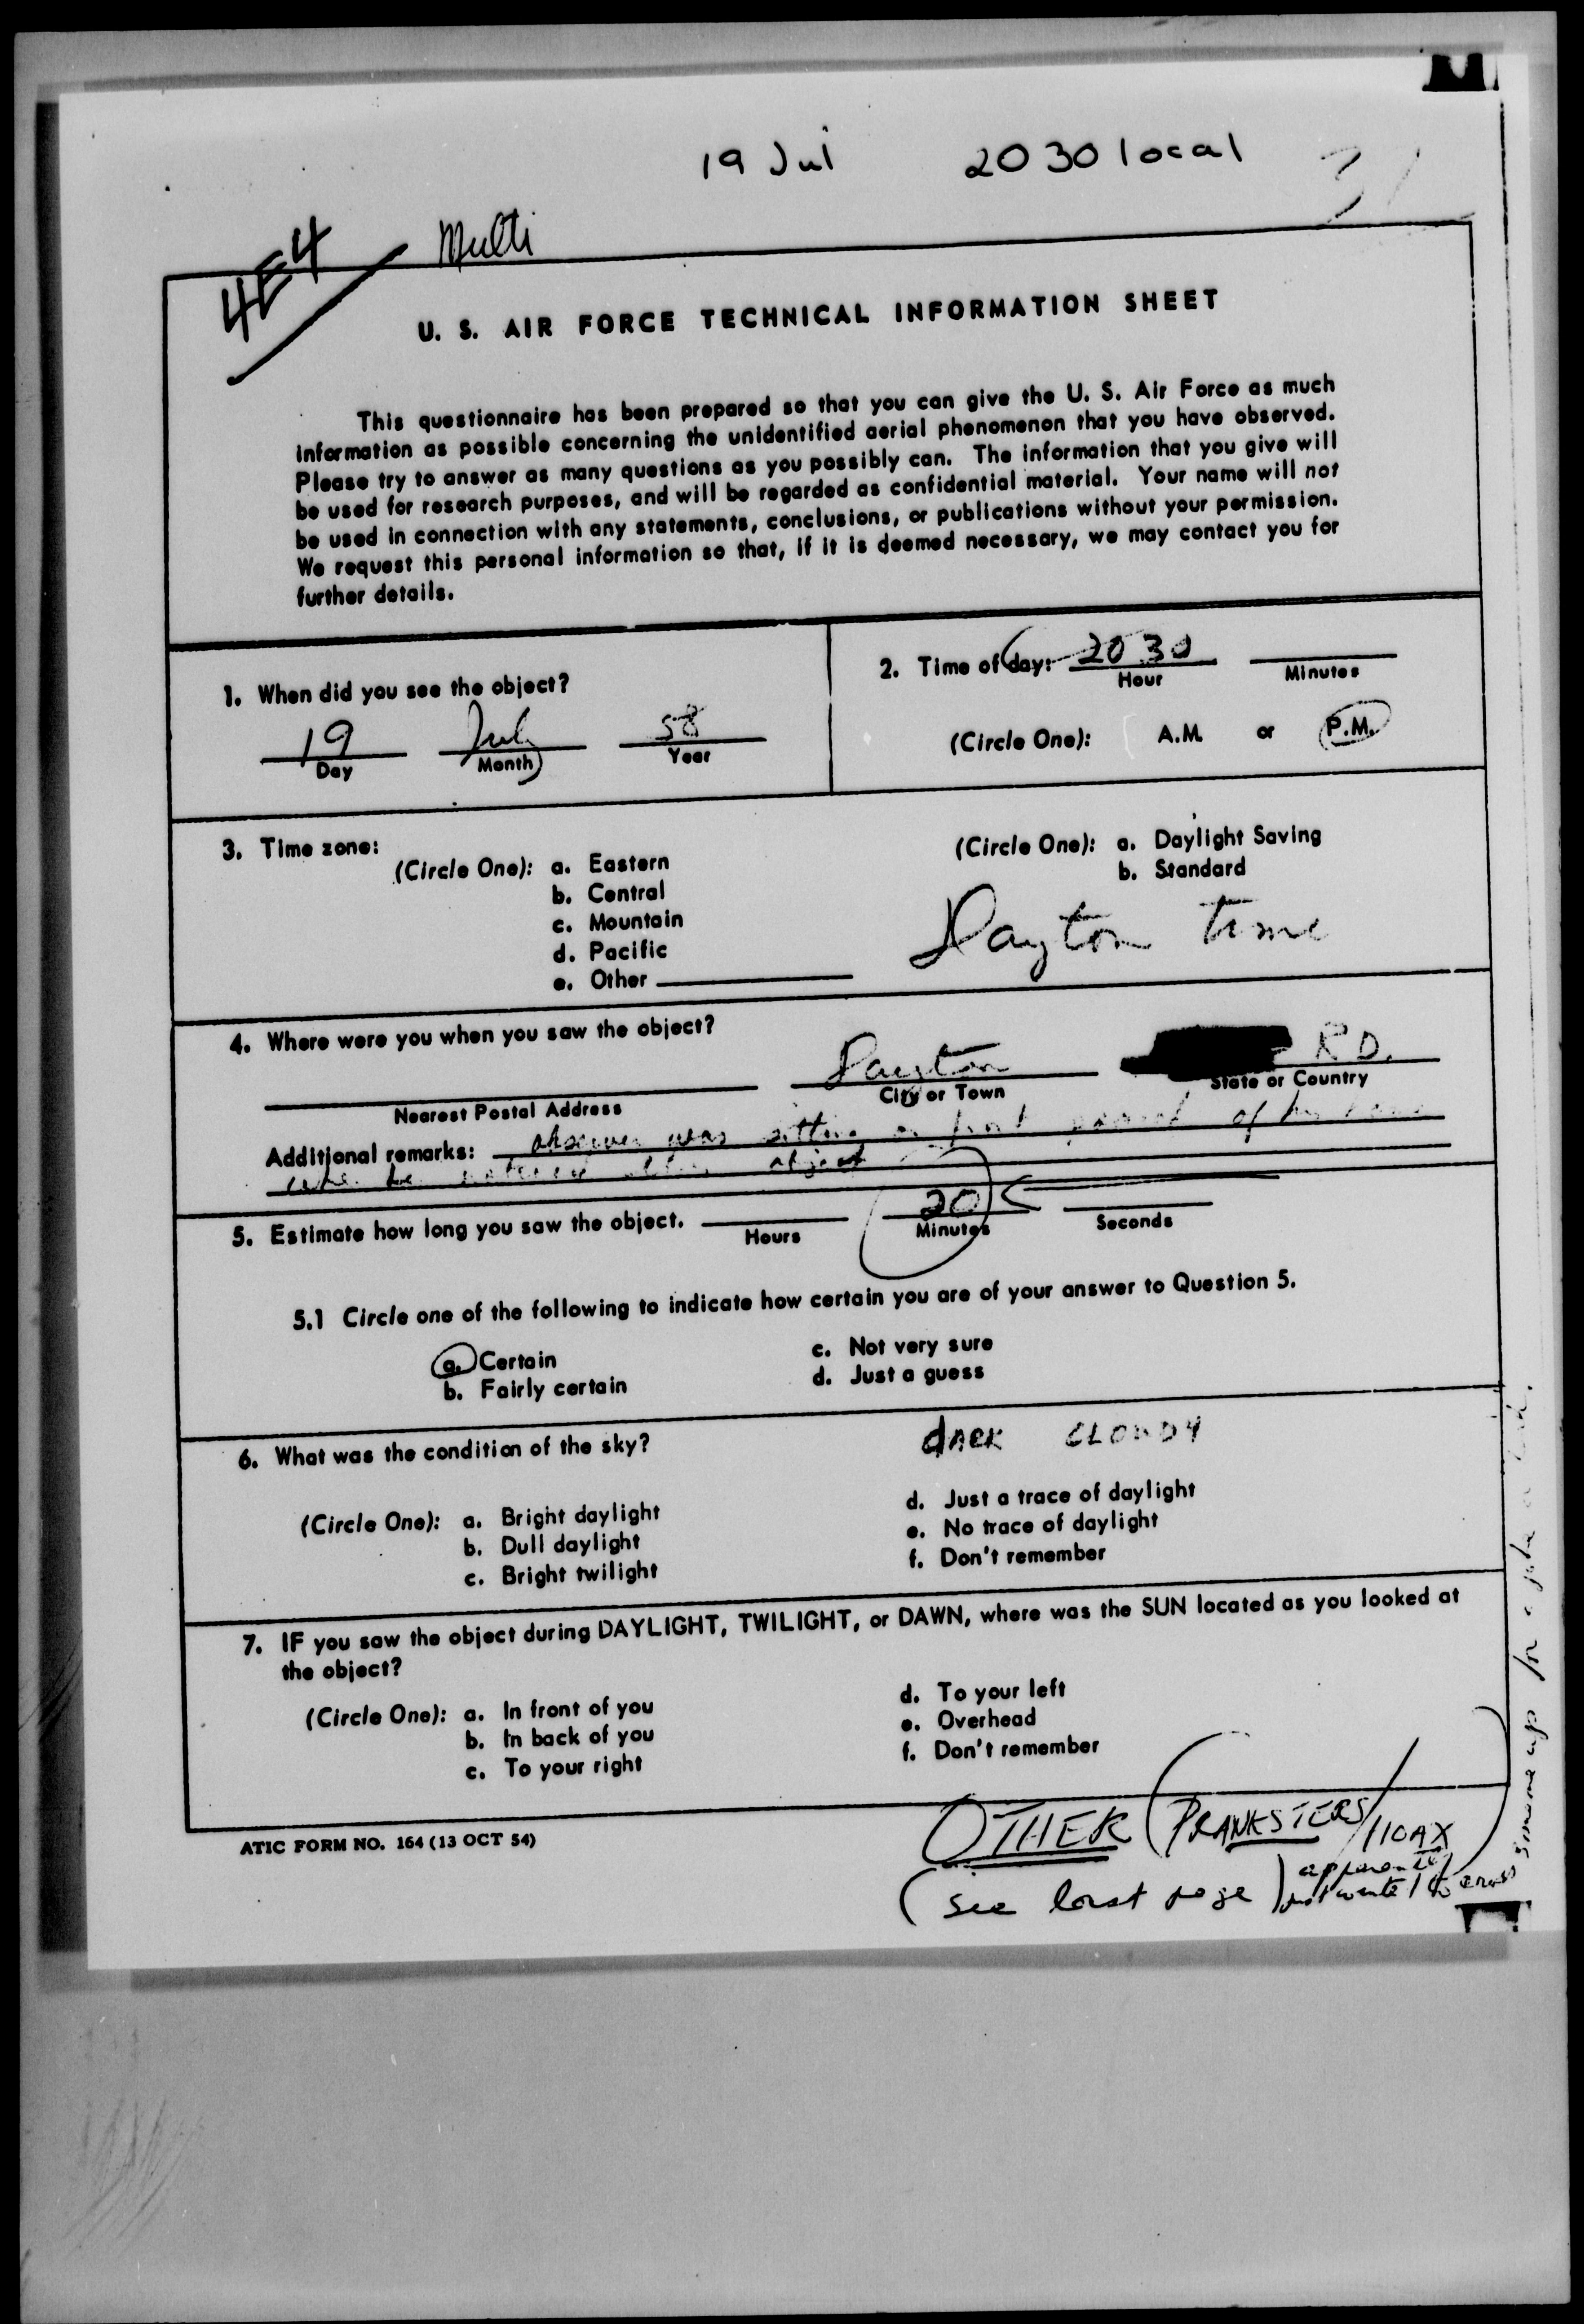 19 Jul 2030 local
4E4 Multi
U. S. AIR FORCE TECHNICAL INFORMATION SHEET
This questionnaire has been prepared so that you can give the U. S. Air Force as much
information as possible concerning the unidentified aerial phenomenon that you have observed.
Please try to answer as many questions as you possibly can. The information that you give will
be used for research purposes, and will be regarded as confidential material. Your name will not
be used in connection with any statements, conclusions, or publications without your permission.
We request this personal information so that, if it is deemed necessary, we may contact you for
further details.
1. When did you see the object?
19 July 58
Day Month Year
2. Time of day: 2030
Hour Minutes
(Circle One): A.M. or P.M.
3. Time zone:
(Circle One): a. Eastern
b. Central
c. Mountain
d. Pacific
e. Other
(Circle One): a. Daylight Saving
b. Standard
Dayton time
4. Where were you when you saw the object?
Dayton RD.
Nearest Postal Address City or Town State or Country
Additional remarks: observer was sitting on front of his
when he noticed object
5. Estimate how long you saw the object. 20
Hours Minutes Seconds
5.1 Circle one of the following to indicate how certain you are of your answer to Question 5.
a. Certain
b. Fairly certain
c. Not very sure
d. Just a guess
6. What was the condition of the sky?
dARK CLOUDY
(Circle One): a. Bright daylight
b. Dull daylight
c. Bright twilight
d. Just a trace of daylight
e. No trace of daylight
f. Don't remember
7. IF you saw the object during DAYLIGHT, TWILIGHT, or DAWN, where was the SUN located as you looked at
the object?
(Circle One): a. In front of you
b. In back of you
c. To your right
d. To your left
e. Overhead
f. Don't remember
ATIC FORM NO. 164 (13 OCT 54)
OTHER (PRANKSTERS/HOAX)
(see last page) apparently
someone up for a